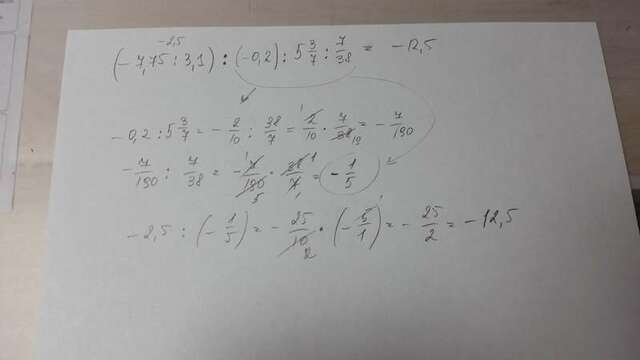 -2,5
(-7,75 : 3,1) : (-0,2) : 5 3/7 : 7/38 = -12,5
-0,2 : 5 3/7 = - 2/10 : 38/7 = 2/10 · 7/38 = - 7/190
1 19
- 7/190 : 7/38 = - 7/190 · 38/7 = - 1/5
1 1 5 1
-2,5 : (- 1/5) = - 25/10 · (- 5/1) = - 25/2 = -12,5
1 2